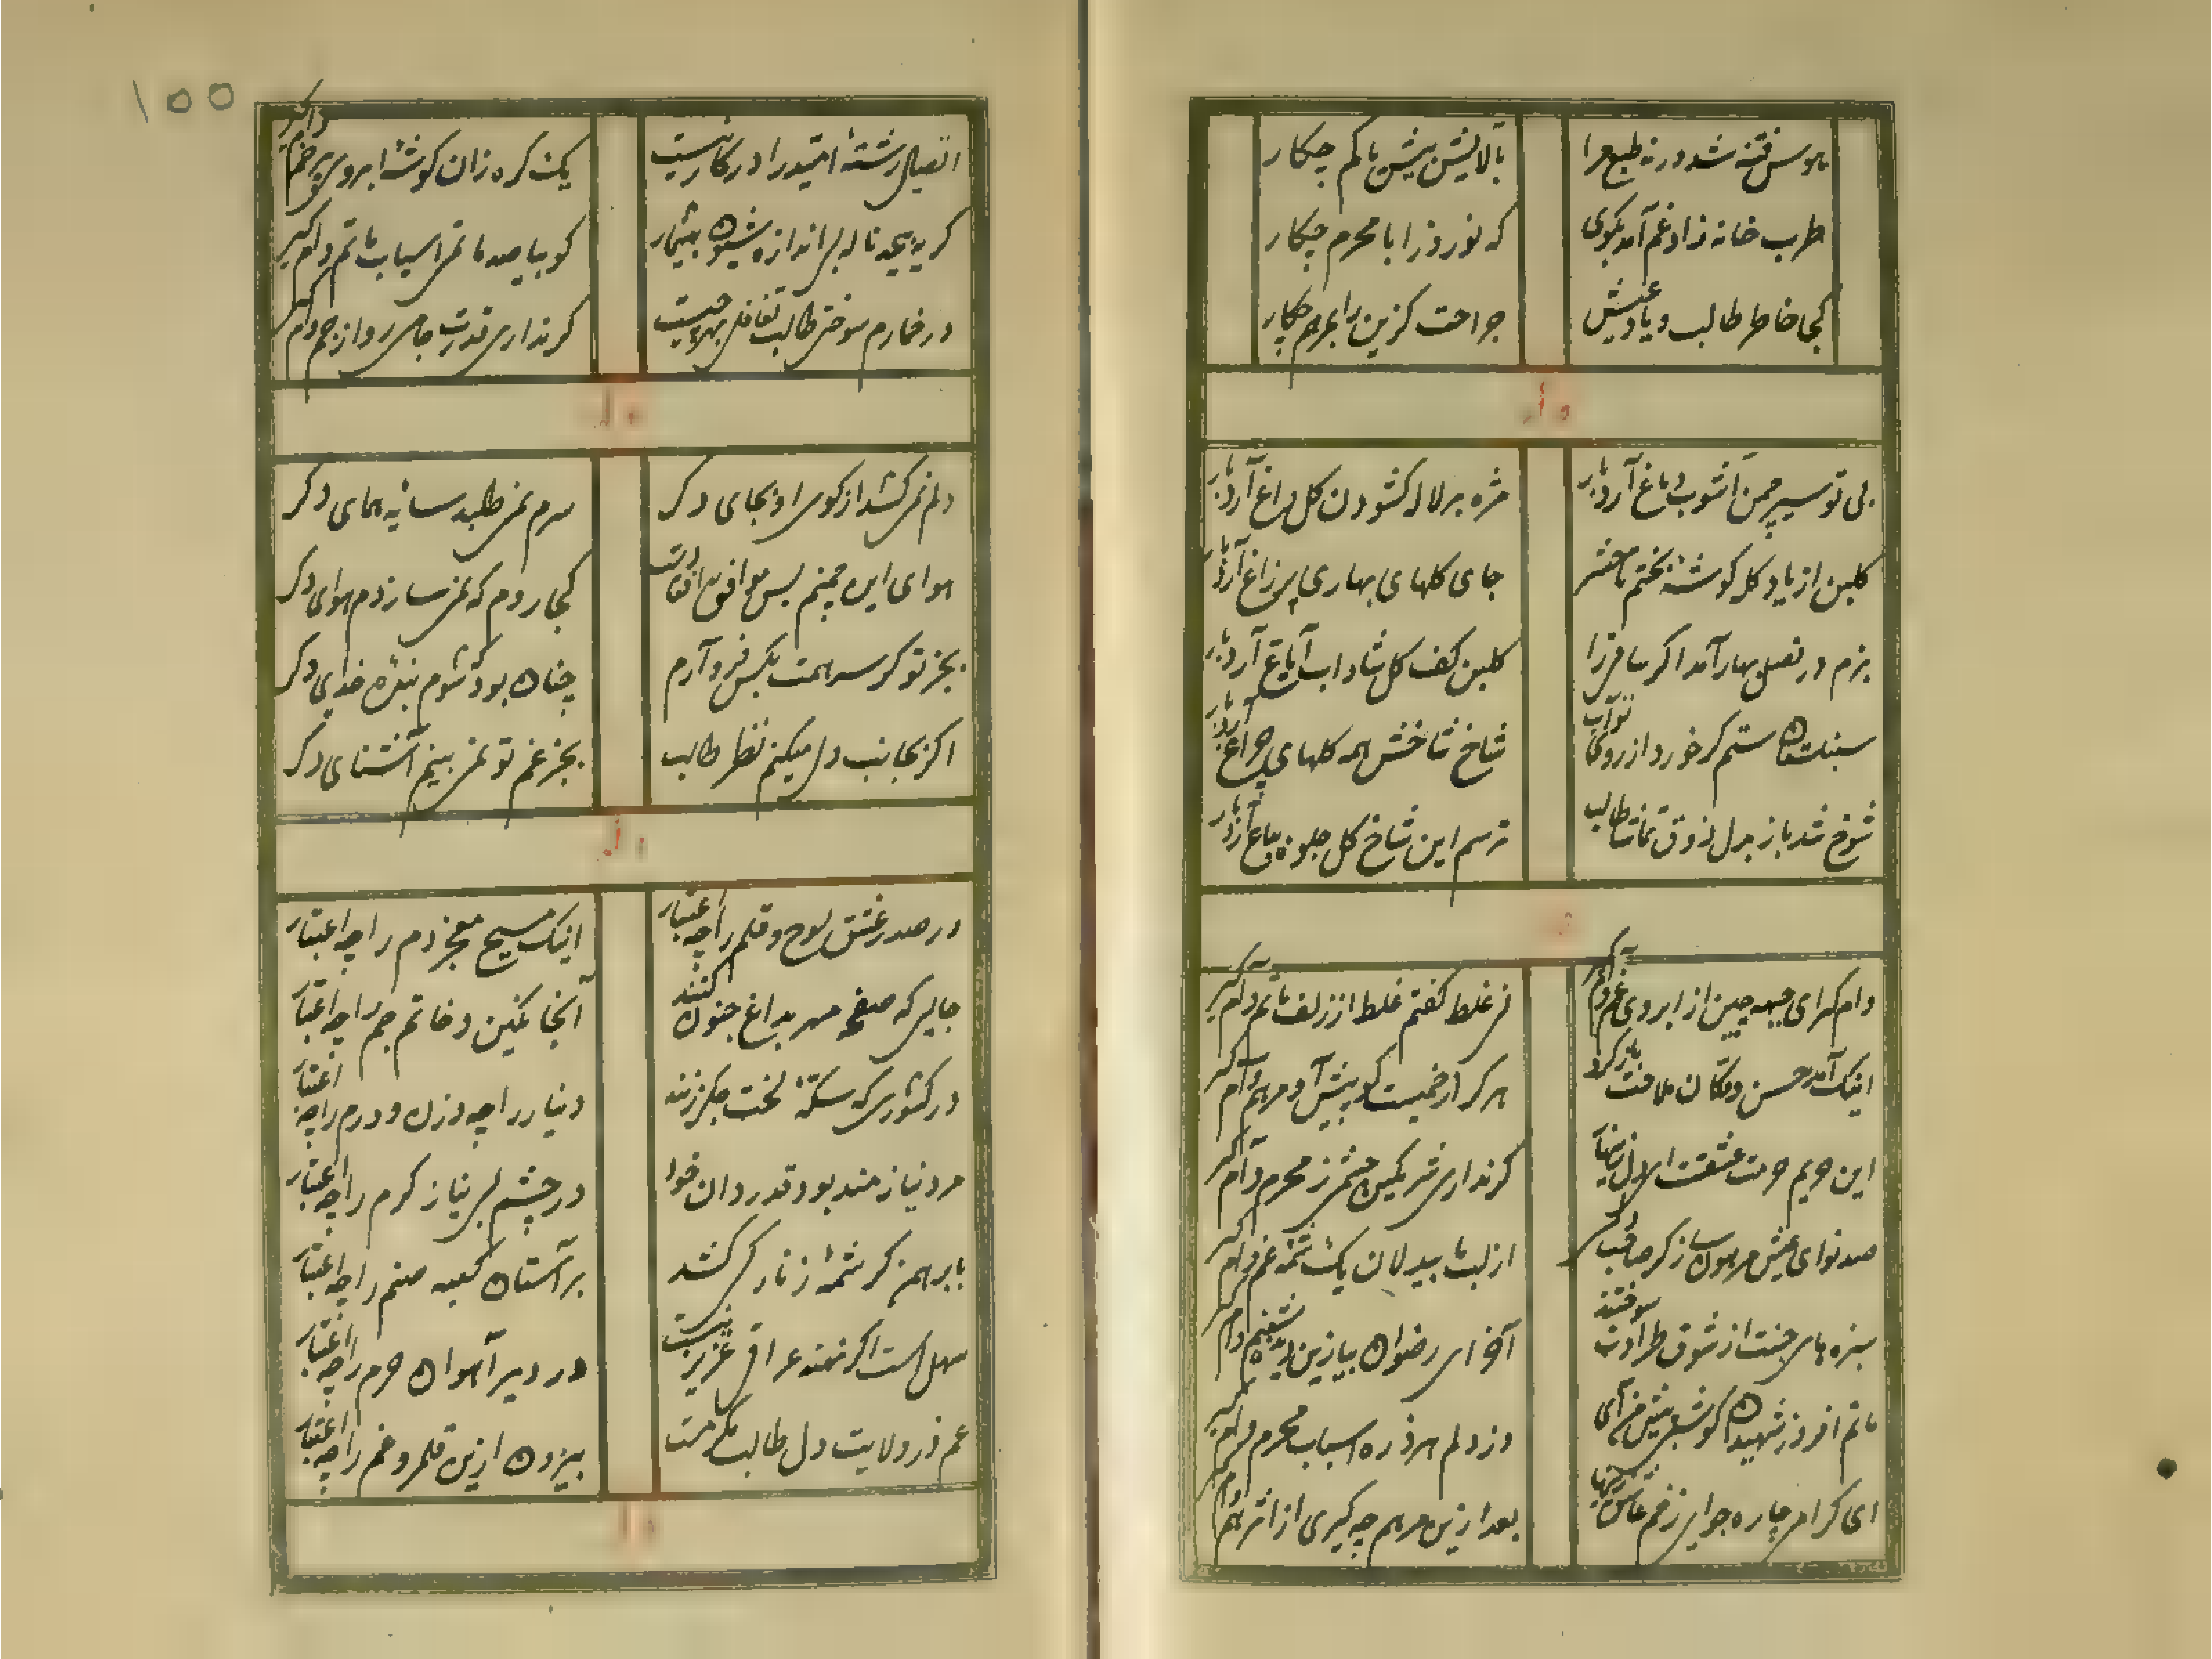 هوس فتنه شد ورنه طبع مرا
بآلایش بیش یا کم چکار
طرب خانه زاد غم آمد بکوی
که نوروز را با محرم چکار
کجا خاطر طالب و یاد عیش
جراحت گزین را بمرهم چکار
بی تو سیر چمن آشوب دماغ آرد بار
مژه بر لاله کشودن کل داغ آرد بار
کلبن از یاد کل کوشهٔ بختم تا حشر
جای کلهای بهاری پر زاغ آرد بار
بزم در فصل بهار آمد اگر ساقی را
کلبن کف کل شاداب ایاغ آرد بار
سنبلستان ستم کر خورد از روی تو آب
شاخ شاخش همه کلهای چراغ آرد بار
شوخ شد باز بدل ذوق تماشا طالب
ترسم این شاخ کل جلوه باغ آرد بار
وام کرای جبهه چین از ابروی غم وام کیر
نی غلط کفتم غلط از زلف ماتم وام کیر
اینک آمد حسن و دکان ملاحت باز کرد
هر کرا زخمیست کو پیش آ و مرهم وام کیر
این حریم حرمت عشقست
کر نداری شرمکین چشمی ز محرم وام کیر
صد نوای عیش مرهون ساز کر صاحب
از لب ما بیدلان یک نغمه غم وام کیر
سبزه های جنت از شوق طراوت سوختند
آخر ای رضوان بیا زین دیده شبنم وام کیر
ماتم افروز شهیدان کو شبی پیش من آی
وز دلم هر ذره اسباب محرم وام کیر
بعد ازین مرهم چه کیری از اثر هم وام کیر
اتصال رشتهٔ امید را در کار نیست
یک کره زان کوشهٔ ابروی پر خم وام کیر
کریه بیحد ناله بی اندازه شیون بیشمار
کو بیا صد ماتمی اسباب ماتم وام کیر
در خمارم سوختی طالب تغافل بهر چیست
کر نداری قدرت جامی رو از جم وام کیر
وله
دلم نمی کشد از کوی او بجای دکر
سرم نمی طلبد سایهٔ همای دکر
هوای این چمنم بس موافق افتادست
کجا روم که نمی سازدم هوای دکر
بجز تو کر سر همت بکس فرو آرم
چنان بود که شوم بندهٔ خدای دکر
اکر بجانب دل میکنم نظر طالب
بجز غم تو نمی بینم آشنای دکر
وله
در صدر عشق لوح و قلم را چه اعتبار
اینک مسیح معجز دم را چه اعتبار
جایی که صفحه مهر بداغ جنون کنند
آنجا نکین و خاتم جم را چه اعتبار
در کشوری که سکهٔ لخت جکر زنند
دینار را چه وزن و درم را چه اعتبار
مرد نیازمند بود قدردان خوا
در چشم بی نیاز کرم را چه اعتبار
با برهمن کرشمهٔ زنار کی کشد
بر آستان کعبه صنم را چه اعتبار
سهل است اکر نهند عراقی عزیز نیست
در دیر آهوان حرم را چه اعتبار
غم در ولایت دل طالب مکرمست
بیرون ازین قلمرو غم را چه اعتبار
۱۰۰